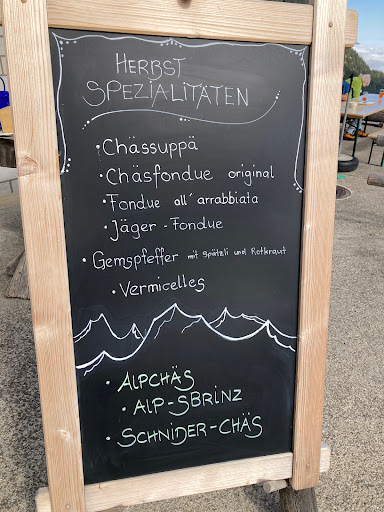 HERBST
SPEZIALITÄTEN
• Chässuppä
• Chäsfondue original
• Fondue all'arrabbiata
• Jäger-Fondue
• Gemspfeffer mit Spätzli und Rotkraut
• Vermicelles
• ALPCHÄS
• ALP-SBRINZ
• SCHNIDER-CHÄS